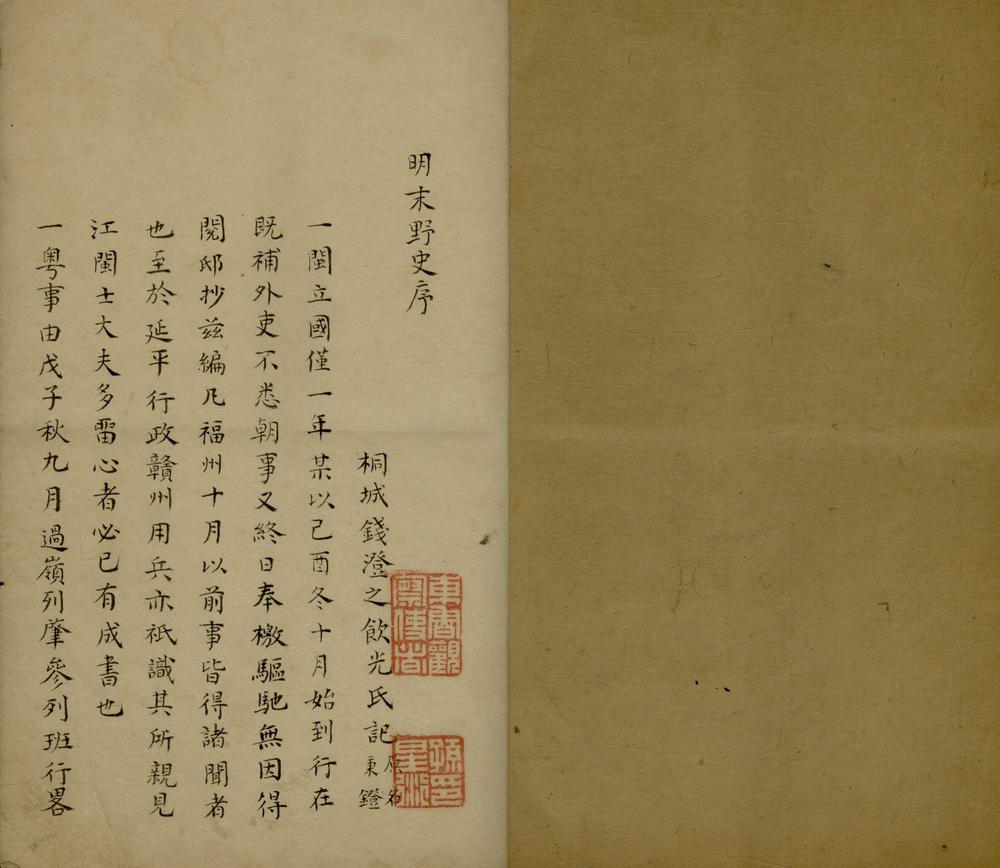 明末野史序
桐城錢澄之飲光氏記原名秉鐙
一閩立國僅一年某以己酉冬十月始到行在
既補外吏不悉朝事又終日奉檄驅馳無因得
閱邸抄茲編凡福州十月以前事皆得諸聞者
也至於延平行政贛州用兵亦祇識其所親見
江閩士大夫多畱心者必已有成書也
一粵事由戊子秋九月過嶺列肇參列班行畧
東魯觀察使者
孫印星衍